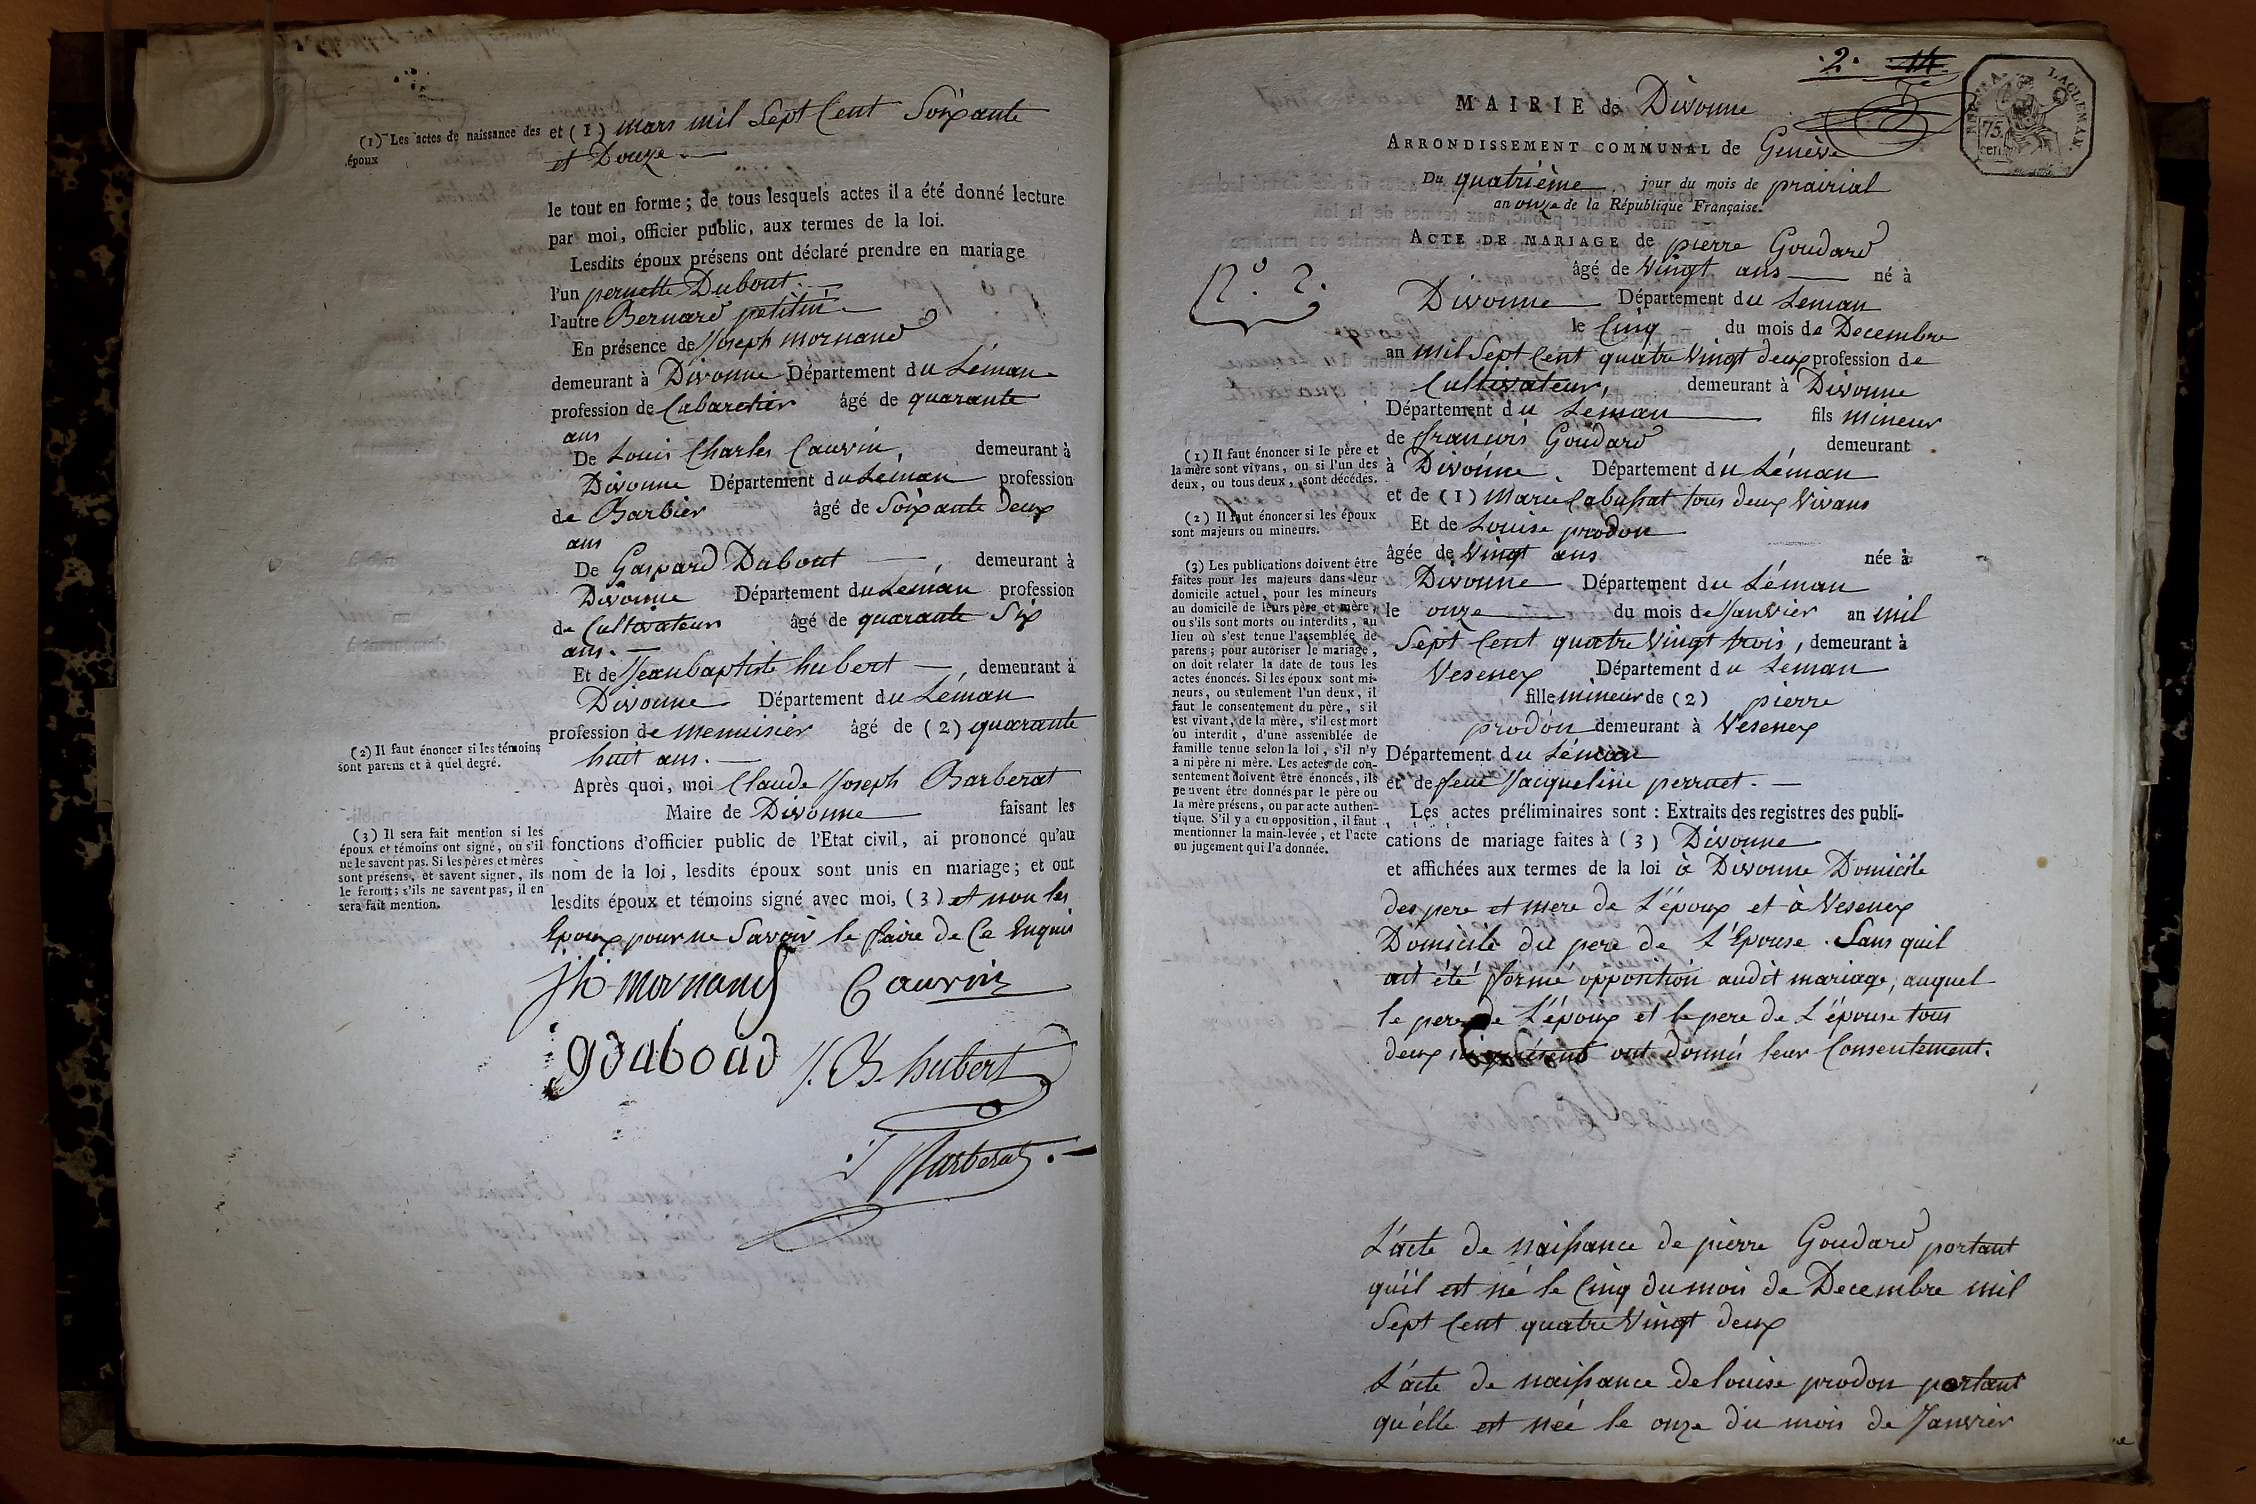 (1) Les actes de naissance des
époux
et (1) mars mil Sept Cent Soixante
et Douze.
le tout en forme; de tous lesquels actes il a été donné lecture
par moi, officier public, aux termes de la loi.
Lesdits époux présens ont déclaré prendre en mariage
l'un pernette Dubout.
l'autre Bernard petitin
En présence de Joseph mornand
demeurant à Divonne Département du Léman
profession de Cabaretier âgé de quarante
ans
De Louis Charles Cauvin, demeurant à
Divonne Département du Léman profession
de Barbier âgé de Soixante Deux
ans
De Gaspard Dabout demeurant à
Divonne Département du Léman profession
de Cultivateur âgé de quarante Six
ans.
Et de Jean baptiste hubert, demeurant à
Divonne Département du Léman
profession de menuisier âgé de (2) quarante
huit ans.
(2) Il faut énoncer si les témoins
sont parens et à quel degré.
Après quoi, moi Claude Joseph Barberat
Maire de Divonne faisant les
fonctions d'officier public de l'Etat civil, ai prononcé qu'au
nom de la loi, lesdits époux sont unis en mariage; et ont
lesdits époux et témoins signé avec moi, (3) et non les
Epoux pour ne Savoir le faire de Ce Enquis
(3) Il sera fait mention si les
époux et témoins ont signé, ou s'il
ne le savent pas. Si les pères et mères
sont présens, et savent signer, ils
le feront; s'ils ne savent pas, il en
sera fait mention.
jh mornand Cauvin
gdaboud J. B. hubert
Barberat
.2. 14
75
cent.
MAIRIE de Divonne
ARRONDISSEMENT COMMUNAL de Genève
Du quatrième jour du mois de prairial
an onze de la République Française.
ACTE DE MARIAGE de pierre Goudard
âgé de Vingt ans né à
N.º 2.
Divonne Département du Leman
le Cinq du mois de Decembre
an mil Sept Cent quatre Vingt deux profession de
Cultivateur, demeurant à Divonne
Département du Léman fils mineur
de francois Goudard demeurant
à Divonne Département du Léman
et de (1) Marie Cabussat tous deux Vivans
Et de Louise prodon
âgée de Vingt ans née à
Divonne Département du Léman
le onze du mois de Janvier an mil
Sept Cent quatre Vingt trois, demeurant à
Vesenex Département du Leman
fille mineur de (2) pierre
prodon demeurant à Vesenex
Département du Léman
et de feue Jacqueline perruet.
(1) Il faut énoncer si le père et
la mère sont vivans, ou si l'un des
deux, ou tous deux, sont décédés.
(2) Il faut énoncer si les époux
sont majeurs ou mineurs.
(3) Les publications doivent être
faites pour les majeurs dans leur
domicile actuel, pour les mineurs
au domicile de leurs père et mère,
ou s'ils sont morts ou interdits, au
lieu où s'est tenue l'assemblée de
parens; pour autoriser le mariage,
on doit relater la date de tous les
actes énoncés. Si les époux sont mi-
neurs, ou seulement l'un deux, il
faut le consentement du père, s'il
est vivant, de la mère, s'il est mort
ou interdit, d'une assemblée de
famille tenue selon la loi, s'il n'y
a ni père ni mère. Les actes de con-
sentement doivent être énoncés, ils
peuvent être donnés par le père ou
la mère présens, ou par acte authen-
tique. S'il y a eu opposition, il faut
mentionner la main-levée, et l'acte
ou jugement qui l'a donnée.
Les actes préliminaires sont : Extraits des registres des publi-
cations de mariage faites à (3) Divonne
et affichées aux termes de la loi à Divonne Domicile
des pere et mere de L'époux et à Vesenex
Domicile du pere de L'Epouse. Sans quil
ait été formé opposition audit mariage, auquel
le pere de L'époux et le pere de L'épouse tous
deux ici présents ont donnés leur Consentement.
L'acte de naissance de pierre Goudard portant
qu'il est né le Cinq du mois de Decembre mil
Sept Cent quatre Vingt deux
L'acte de naissance de louise prodon portant
qu'elle est née le onze du mois de Janvier